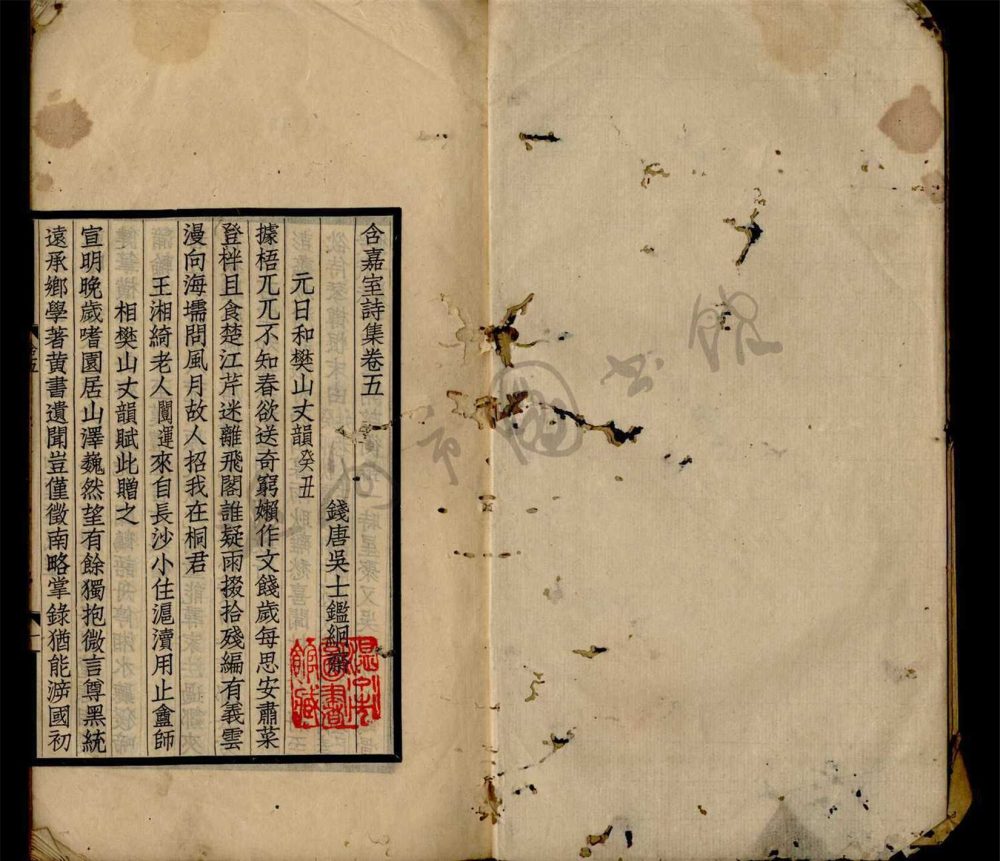 含嘉室詩集卷五
錢唐吳士鑑絅齋
元日和樊山丈韻癸丑
據梧兀兀不知春欲送奇窮嬾作文餞歲每思安肅菜
登柈且食楚江芹迷離飛閣誰疑雨掇拾殘編有義雲
漫向海壖問風月故人招我在桐君
王湘綺老人闓運來自長沙小住滬瀆用止盦師
相樊山丈韻賦此贈之
宣明晚歲嗜園居山澤巍然望有餘獨抱微言尊黑統
遠承鄉學著黃書遺聞豈僅徵南略掌錄猶能泲國初
圖書館藏